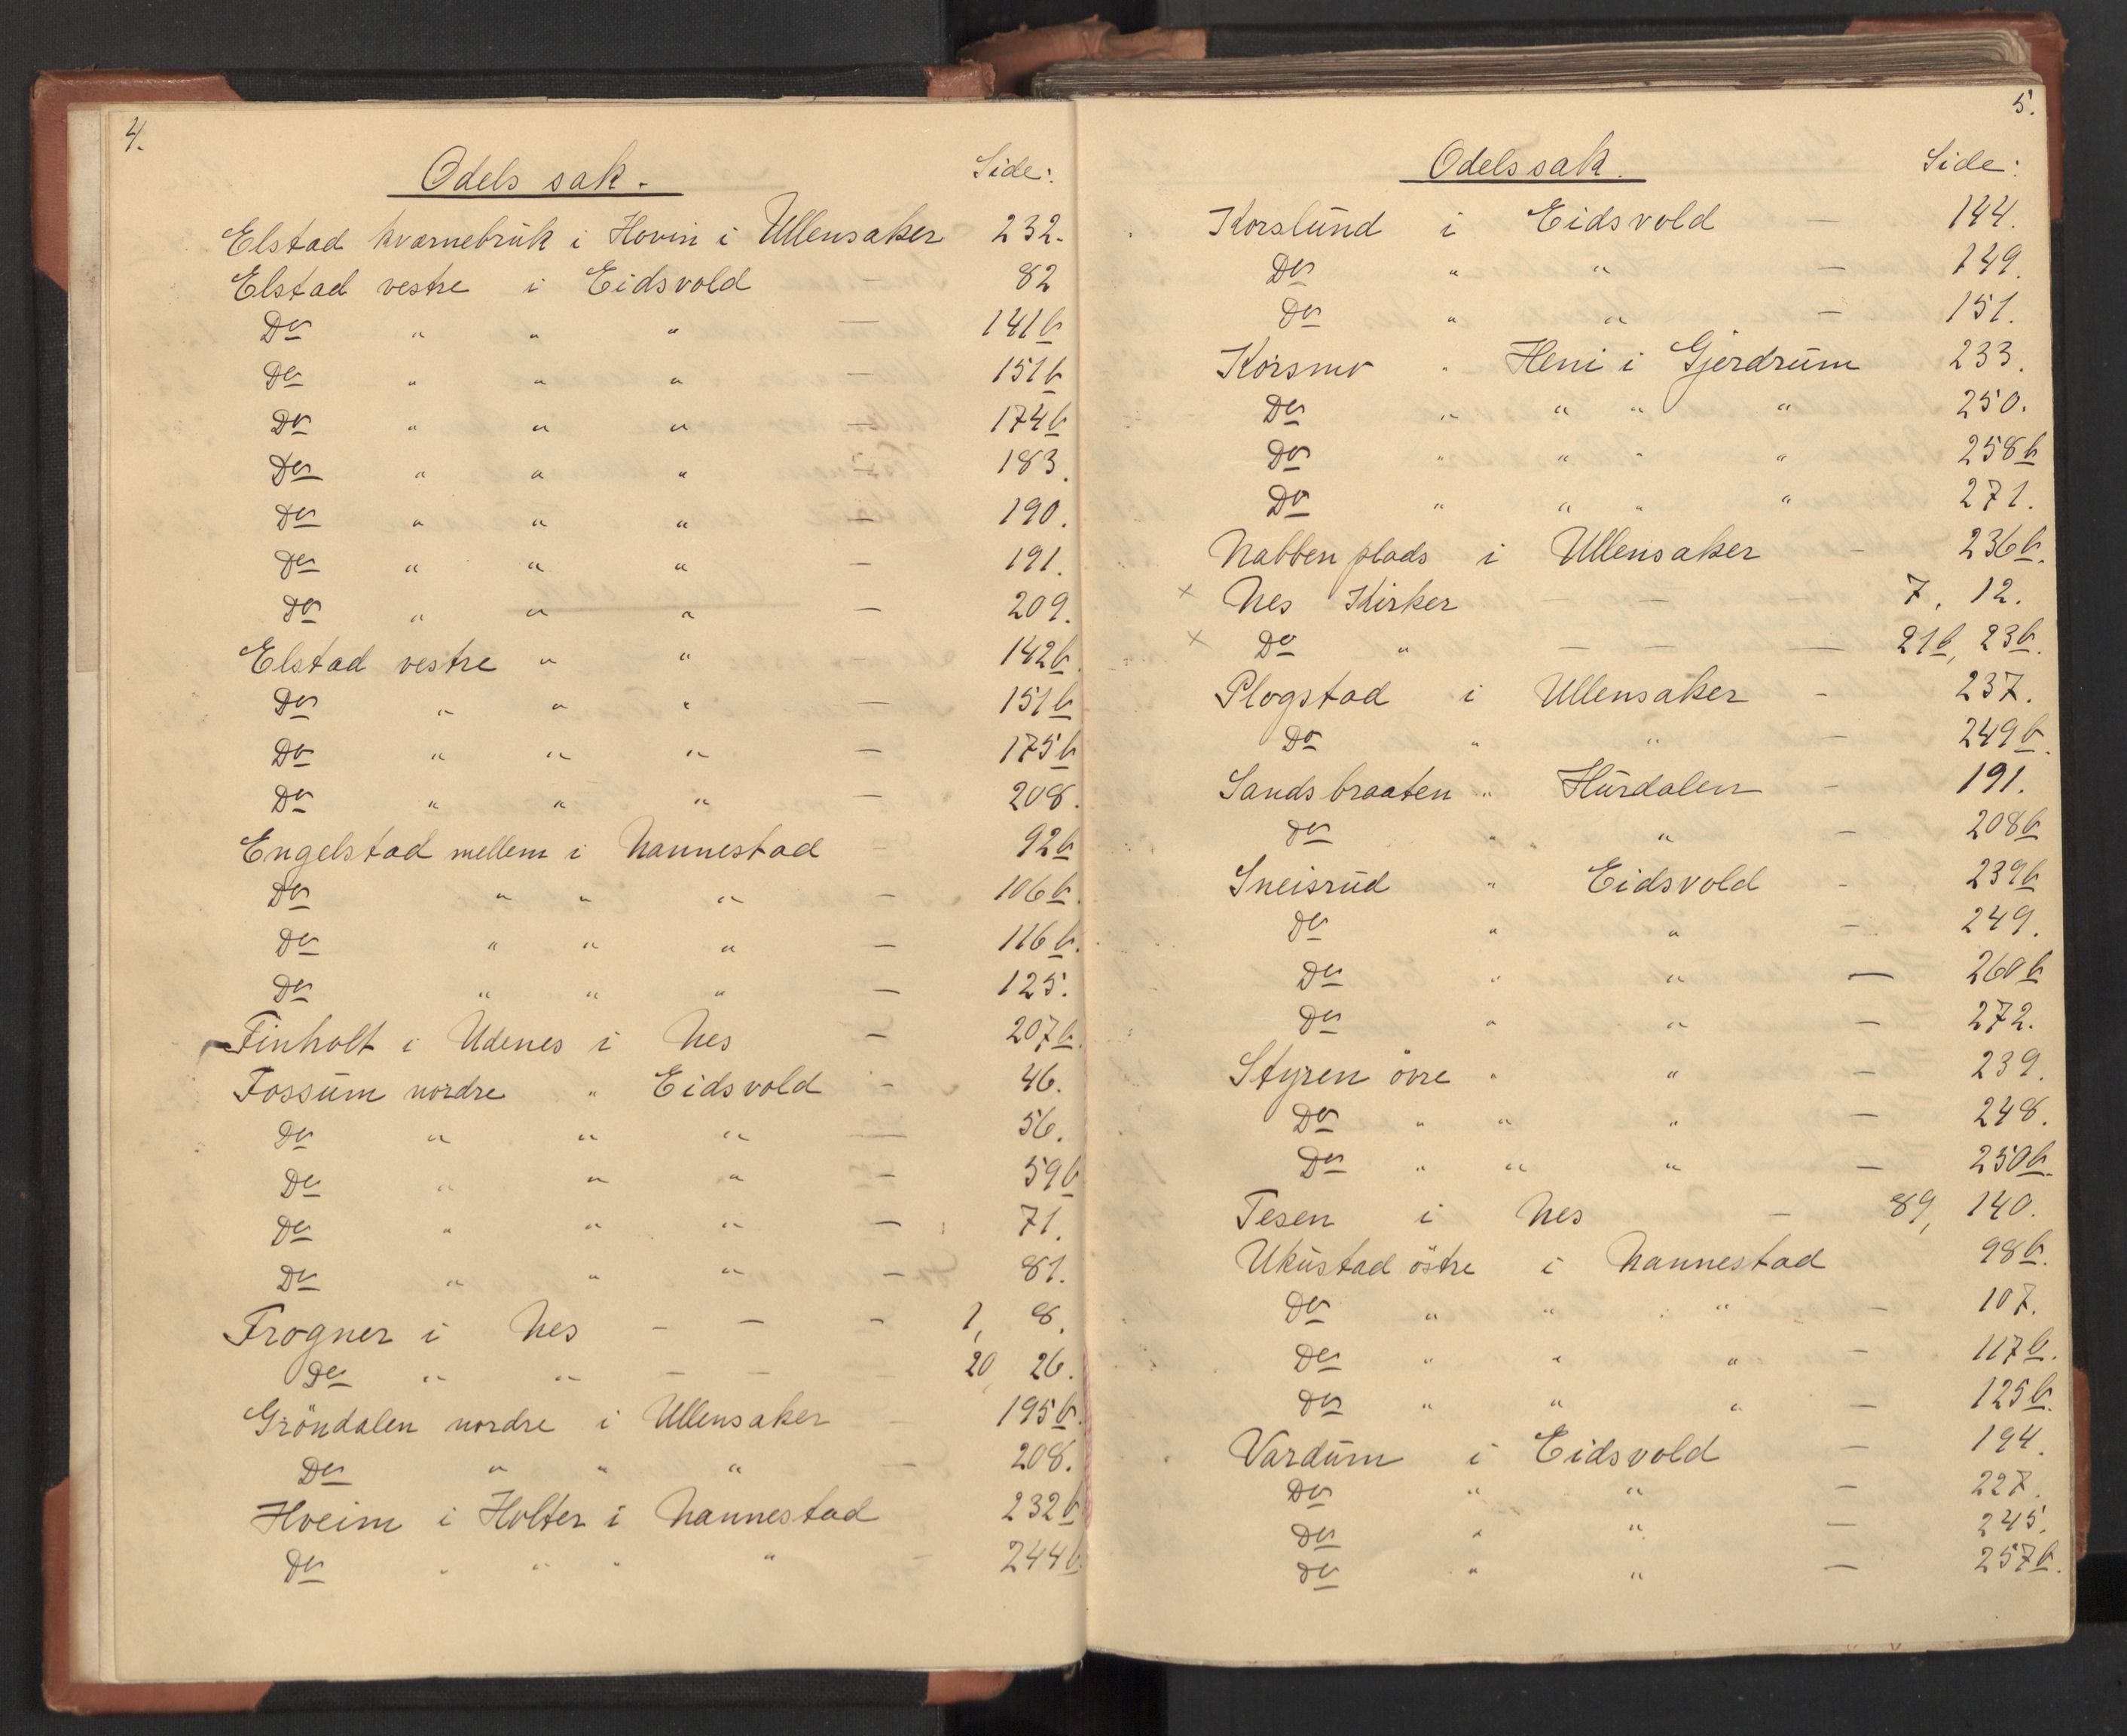 4.
Odels sak. Side:
Elstad kværnebruk i Hovin i Ullensaker 232.
Elstad vestre i Eidsvold — 82
Do " " " — 141b
Do " " " — 151b
Do " " " — 174b
Do " " " — 183.
Do " " " — 190.
Do " " " — 191.
Do " " " — 209.
Elstad vestre " " 142b.
Do " " " — 151b
Do " " " — 175b
Do " " " — 208.
Engelstad mellem i Nannestad — 92b
Do " " " — 106b.
Do " " " — 116b.
Do " " " — 125.
Finholt i Udenes i Nes — 207b.
Fossum nordre " Eidsvold — 46.
Do " " " — 56.
Do " " " — 59b
Do " " " — 71.
Do " " " — 81.
Frogner i Nes — — — 1, 8.
Do " " — — — 20, 26.
Gröndalen nordre i Ullensaker — 195b.
Do " " " — 208.
Hveim i Holter i Nannestad 232b
Do " " " " — 244b.
5.
Odelssak. Side:
Korslund i Eidsvold — 144.
Do " " — 149.
Do " " — 151.
Korsmo " Heni i Gjerdrum 233.
Do " " " " 250.
Do " " " " 258b
Do " " " " 271.
Nabben plads i Ullensaker — 236b.
x Nes Kirker — — 7, 12.
x Do " — — — 21b, 23b.
Plogstad i Ullensaker — 237.
Do " " — 249b.
Sandsbraaten " Hurdalen — 191.
Do " " — 208b
Sneisrud " Eidsvold — 239b
Do " " — 249.
Do " " — 260b
Do " " — 272.
Styren övre " " — 239.
Do " " " — 248.
Do " " " — 250b.
Tesen i Nes — 89, 140.
Ukustad östre i Nannestad 98b.
Do " " " — 107.
Do " " " — 117b.
Do " " " — 125b.
Vardum i Eidsvold — 194.
Do " " — 227.
Do " " — 245.
Do " " — 257b.